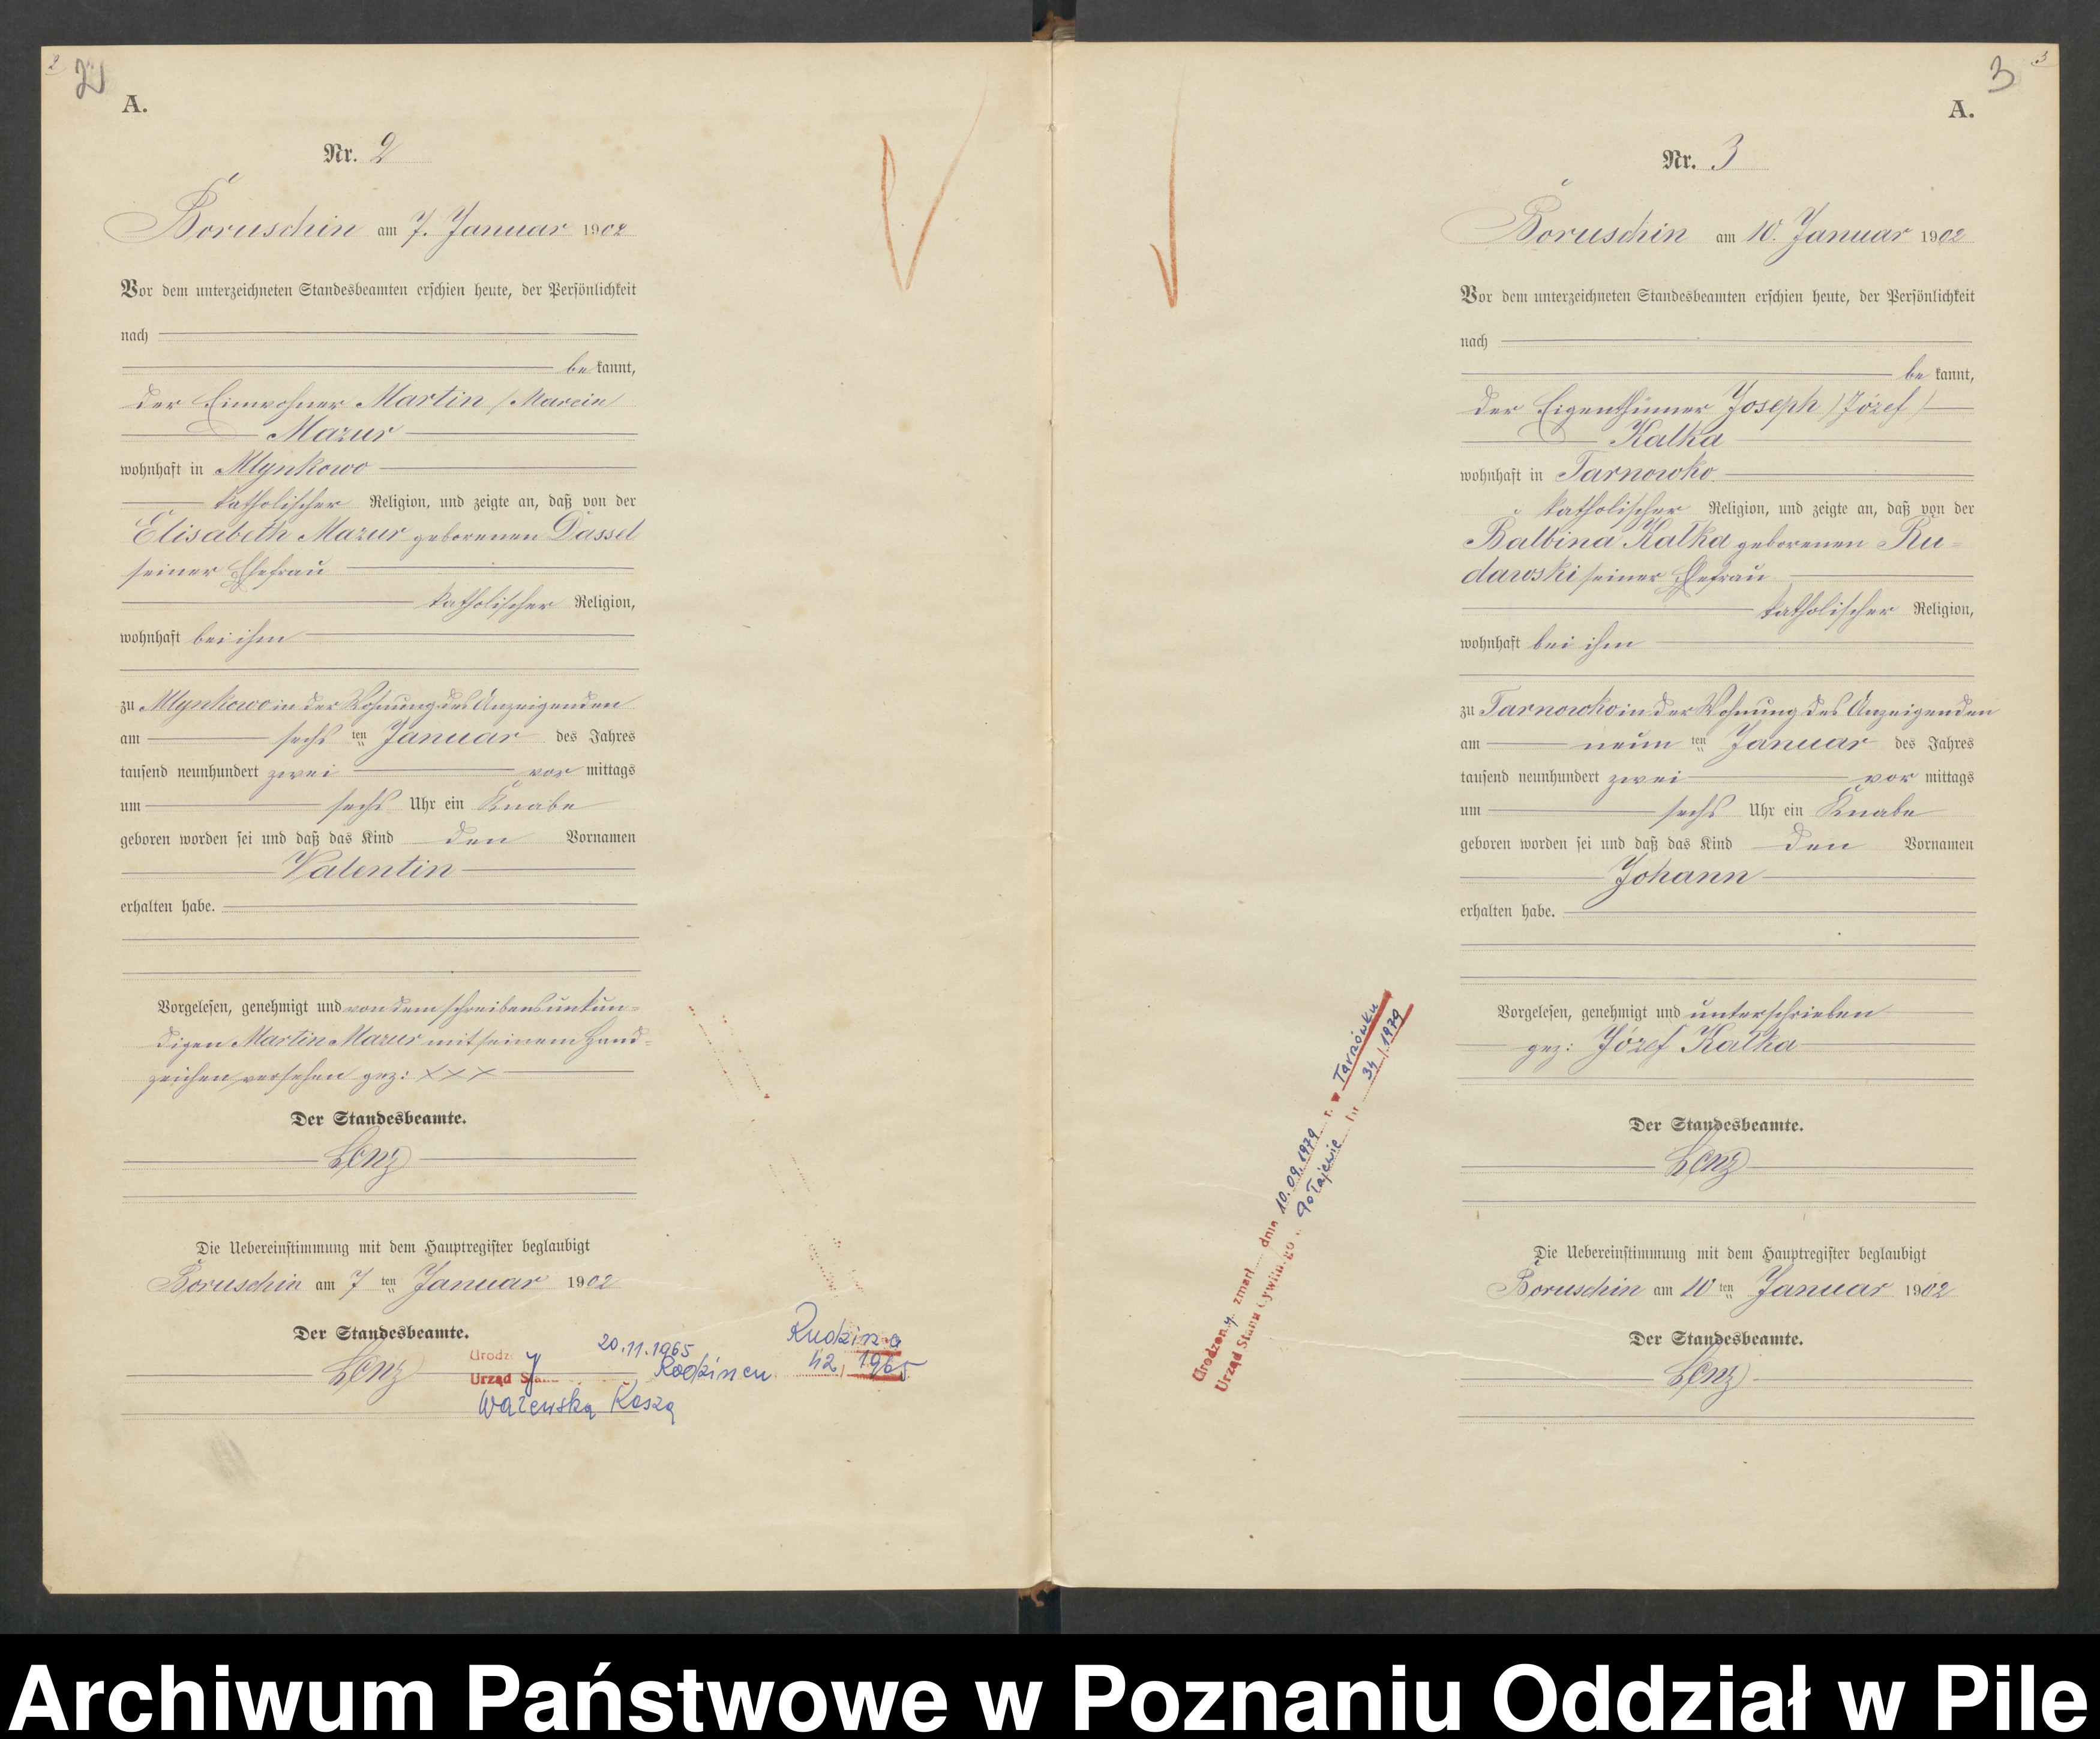 2
2
A.
Nr. 2
Boruschin am 7. Januar 1902
Vor dem unterzeichneten Standesbeamten erschien heute, der Persönlichkeit
nach
be kannt,
der Einwohner Martin /Marcin/
Mazur
wohnhaft in Mlynkowo
katholischer Religion, und zeigte an, daß von der
Elisabeth Mazur geborenen Dassel
seiner Ehefrau
katholischer Religion,
wohnhaft bei ihm
zu Mlynkowo in der Wohnung des Anzeigenden
am sechs ten Januar des Jahres
tausend neunhundert zwei vor mittags
um sechs Uhr ein Knabe
geboren worden sei und daß das Kind den Vornamen
Valentin
erhalten habe.
Vorgelesen, genehmigt und von dem schreibensunkun-
digen Martin Mazur mit seinem Hand-
zeichen versehen gez: xxx
Der Standesbeamte.
Lenz
Die Uebereinstimmung mit dem Hauptregister beglaubigt
Boruschin am 7 ten Januar 1902
Der Standesbeamte.
Lenz
20.11.1965
Urząd
42, 1965
3
3
A.
Nr. 3
Boruschin am 10. Januar 1902
Vor dem unterzeichneten Standesbeamten erschien heute, der Persönlichkeit
nach
be kannt,
der Eigenthümer Joseph /Józef/
Kalka
wohnhaft in Tarnowko
katholischer Religion, und zeigte an, daß von der
Balbina Kalka geborenen Ru-
dawski seiner Ehefrau
katholischer Religion,
wohnhaft bei ihm
zu Tarnowko in der Wohnung des Anzeigenden
am neun ten Januar des Jahres
tausend neunhundert zwei vor mittags
um sechs Uhr ein Knabe
geboren worden sei und daß das Kind den Vornamen
Johann
erhalten habe.
Vorgelesen, genehmigt und unterschrieben
gez: Józef Kalka
Der Standesbeamte.
Lenz
Die Uebereinstimmung mit dem Hauptregister beglaubigt
Boruschin am 10 ten Januar 1902
Der Standesbeamte.
Lenz
zmarł dnia 10.09.1979 r. w Tarnówku
Urząd Stanu Cywilnego Gołajewie nr 34/1979
Archiwum Państwowe w Poznaniu Oddział w Pile